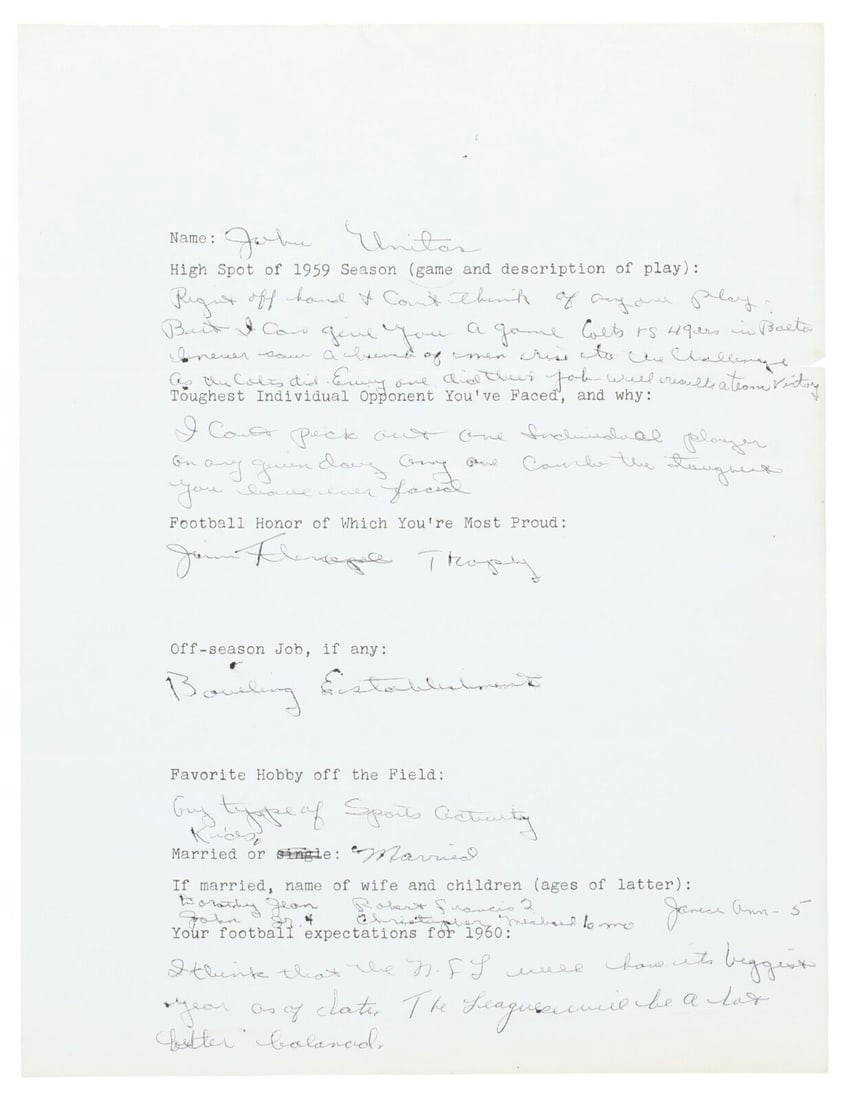 Name: John Unitas
High Spot of 1959 Season (game and description of play):
Right off hand I Can't think of any one play.
But I Can give You a game Colts vs 49ers in Balto
I never saw a bunch of men rise to the Challenge
As the Colts did. Every one did their job well results a team Victory
Toughest Individual Opponent You've Faced, and why:
I Can't Pick out one Individual player
on any given day any one Can be the toughest
you have ever faced
Football Honor of Which You're Most Proud:
Jim Trophy
Off-season Job, if any:
Bowling Establishment
Favorite Hobby off the Field:
Any type of Sports activity
Kids,
Married or single: Married
If married, name of wife and children (ages of latter):
Dorothy Jean Robert Francis 2 Janice Ann - 5
John Jr. 4 Christopher Michael 6 mo
Your football expectations for 1960:
I think that the N.F.L will have its biggest
year as of date. The League will be a lot
better balanced.